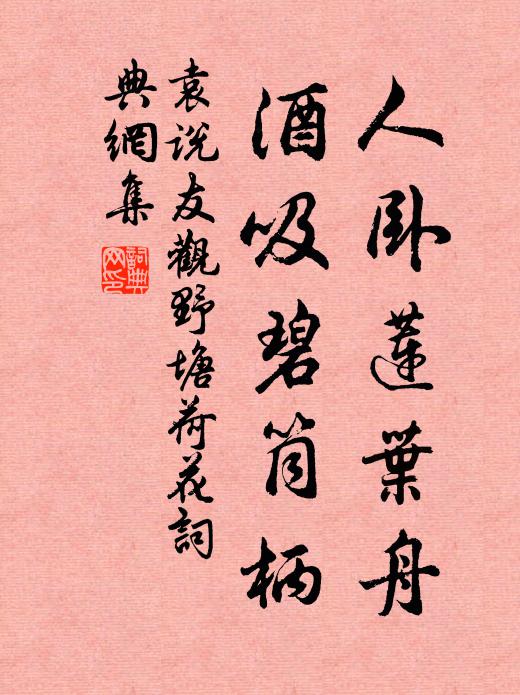 人卧蓮葉舟
酒吸碧筒柄
袁説友觀野塘荷花詞
典網集
詞典網印